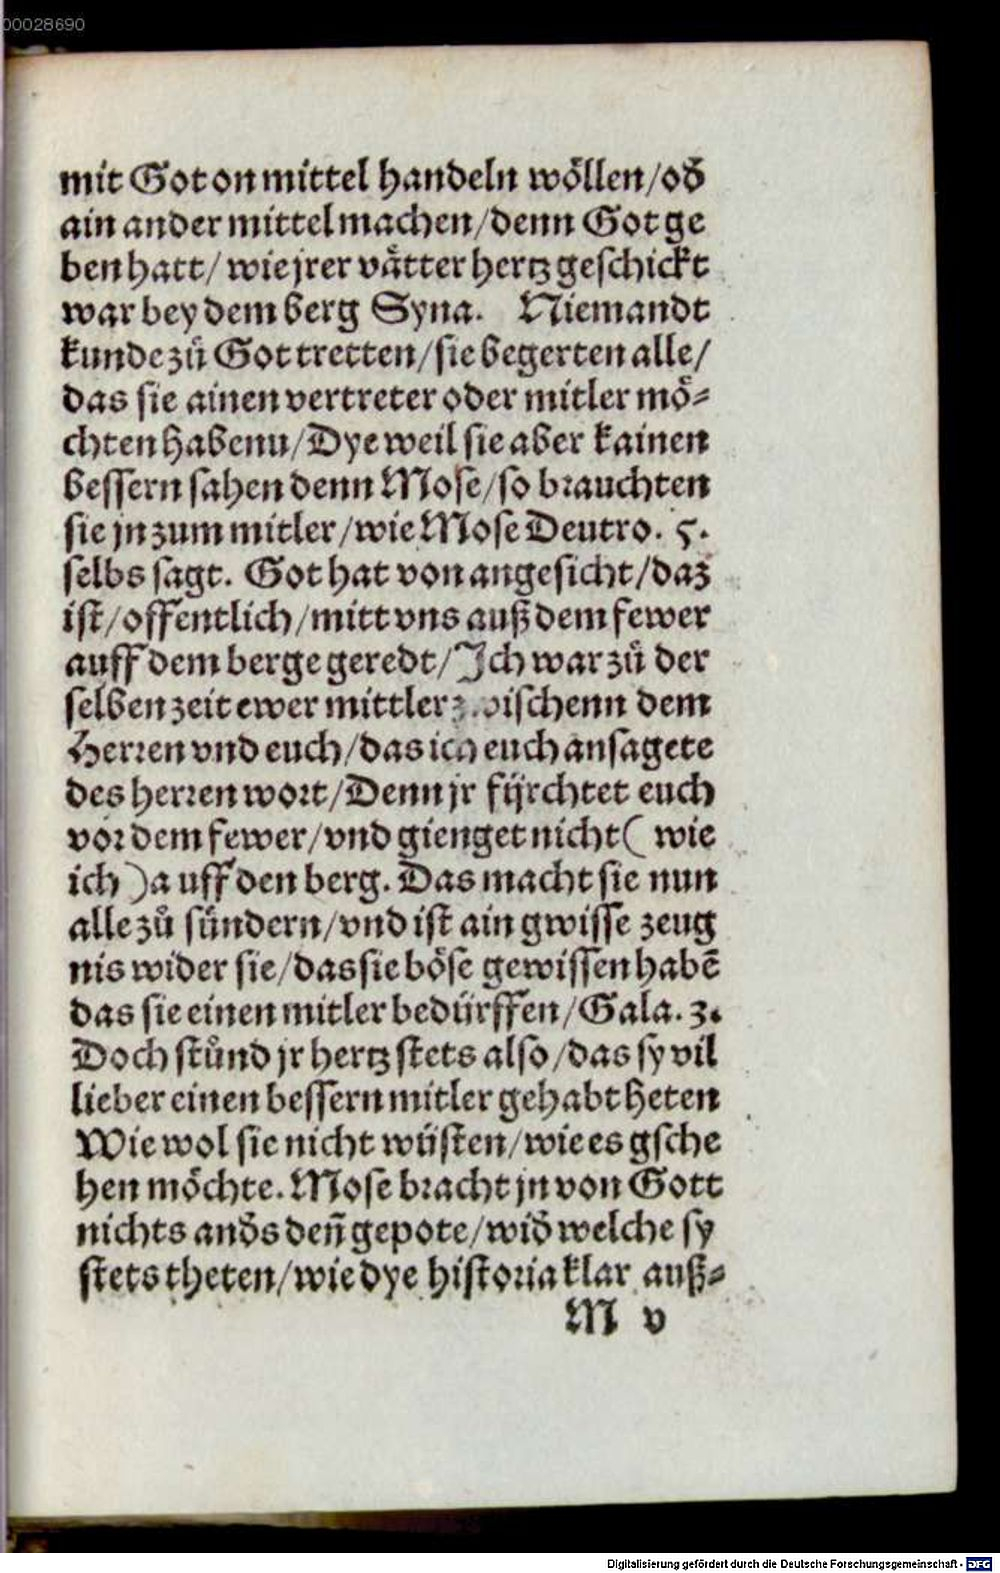 00028690
mit Got on mittel handeln wöllen/od̕
ain ander mittel machen/denn Got ge
ben hatt/ wie jrer vätter hertz geschickt
war bey dem berg Syna. Niemandt
kunde zů Got tretten/sie begerten alle/
das sie ainen vertreter oder mitler mö⸗
chten habenn/Dye weil sie aber kainen
bessern sahen denn Mose/so brauchten
sie jn zum mitler/wie Mose Deutro. 5.
selbs sagt. Got hat von angesicht/daz
ist/offentlich/mitt vns auß dem fewer
auff dem berge geredt/Jch war zů der
selben zeit ewer mittler zwischenn dem
Herren vnd euch/das ich euch ansagete
des herren wort/Denn jr fürchtet euch
vor dem fewer/vnd gienget nicht( wie
ich )a uff den berg. Das macht sie nun
alle zů sündern/vnd ist ain gwisse zeug
nis wider sie/das sie böse gewissen habē
das sie einen mitler bedürffen/Gala. 3.
Doch stůnd jr hertz stets also/das sy vil
lieber einen bessern mitler gehabt heten
Wie wol sie nicht wüsten/wie es gsche
hen möchte. Mose bracht jn von Gott
nichts and̕s den̄ gepote/wid̕ welche sy
stets theten/wie dye historia klar auß⸗
M v
Digitalisierung gefördert durch die Deutsche Forschungsgemeinschaft - DFG